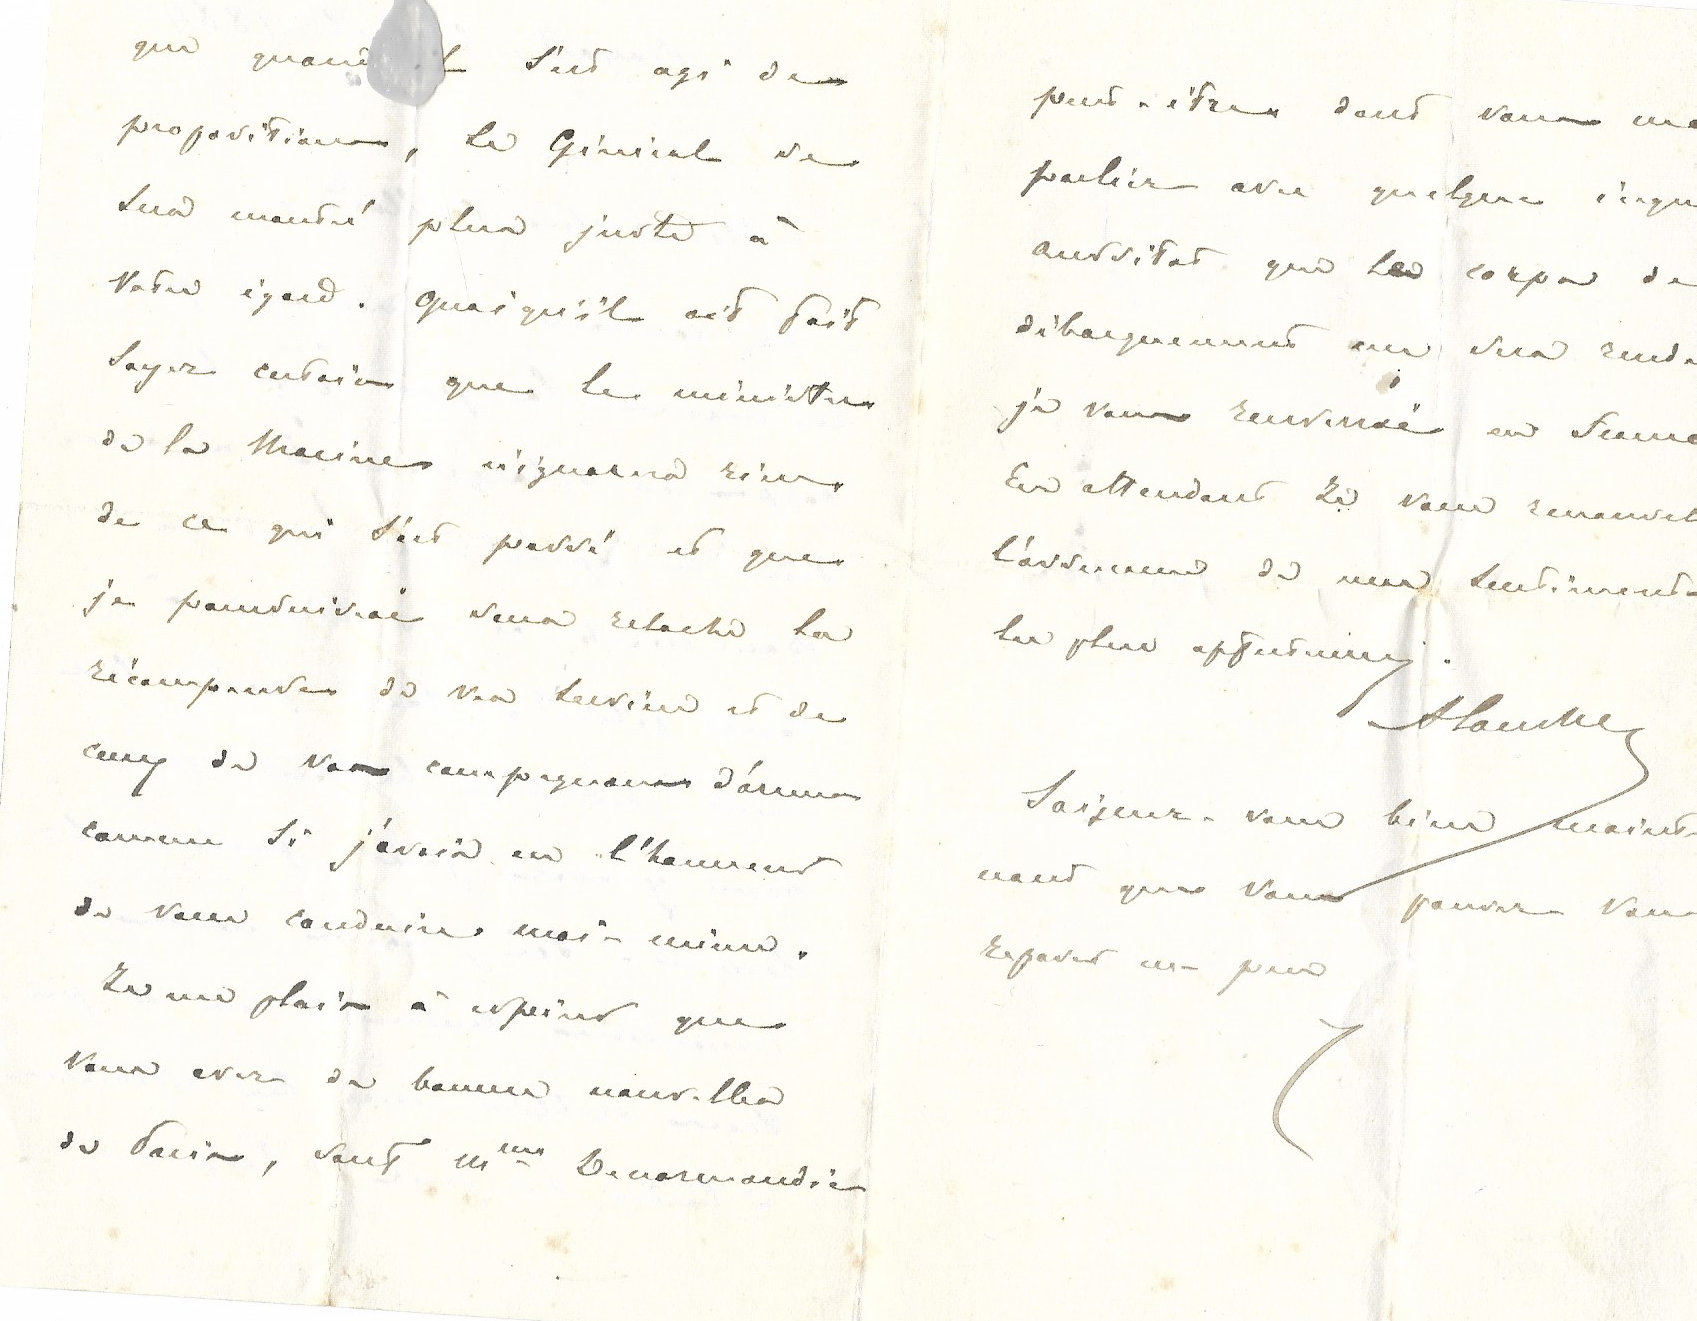 que quand il s'est agi de
propositions, le Général se
sera montré plus juste à
votre égard. Quoiqu'il ait fait
soyez certain que le ministre
de la Marine n'ignorera rien
de ce qui s'est passé et que
je poursuivrai sans relache la
récompense de vos services et de
ceux de vos compagnons d'armes
comme si j'avais eu l'honneur
de vous conduire moi-même.
Je me plais à espérer que
vous avez de bonnes nouvelles
de Paris, sauf Mme Denormandie
peut-être dont vous me
parliez avec quelque inqui
aussitot que le corps de
débarquement me sera rendu
je vous renverrai en France
En attendant je vous renouvel
l'assurance de mes sentiments
les plus affectueux.
Soignez-vous bien mainte
nant que vous pouvez vous
reposer un peu